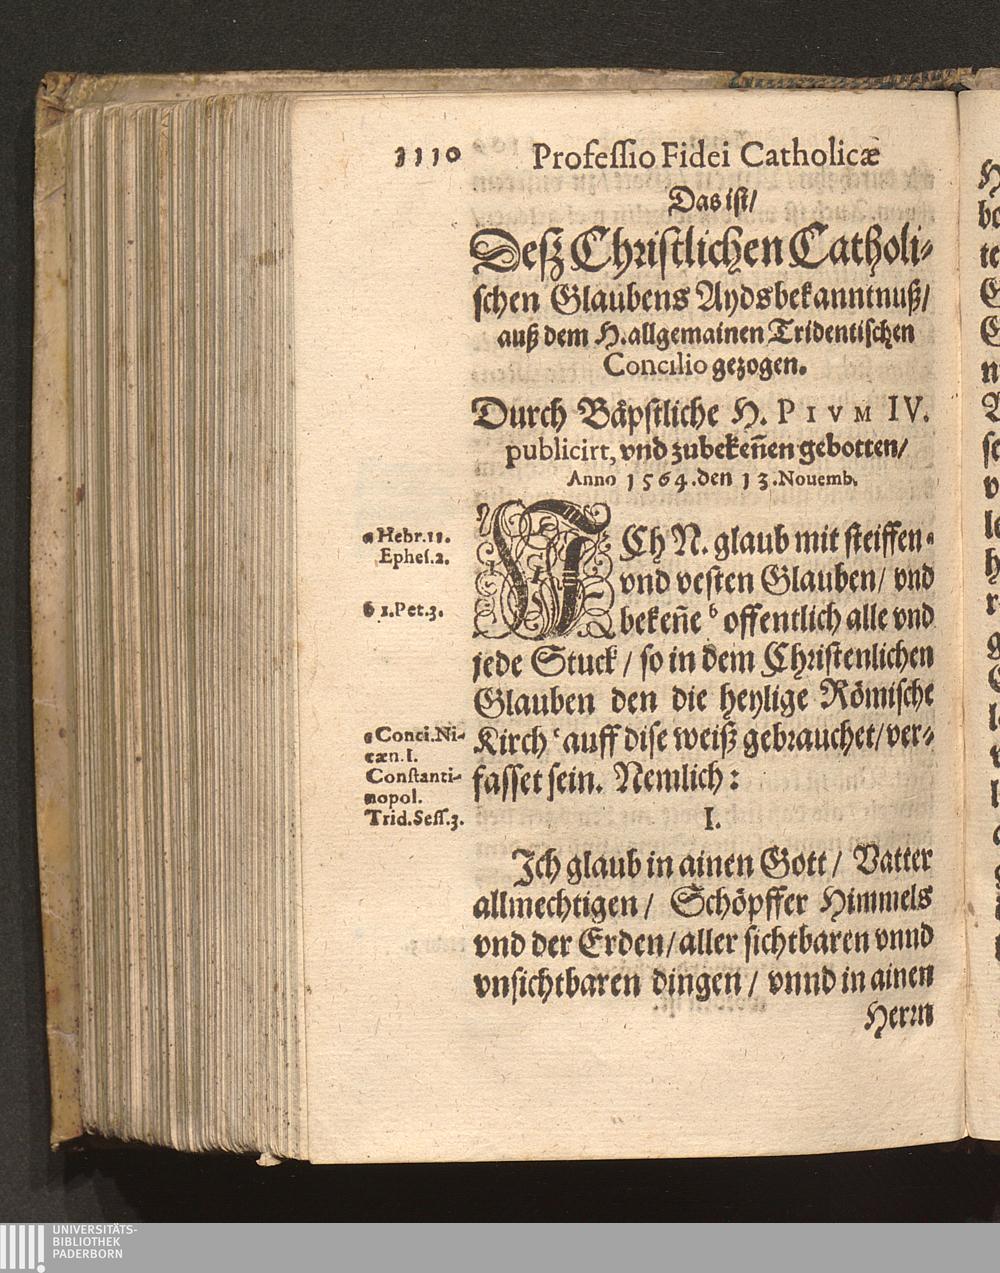 1110 Professio Fidei Catholicæ
Das ist/
Desz Christlichen Catholi-
schen Glaubens Aydsbekanntnuß/
auß dem H. allgemainen Tridentischen
Concilio gezogen.
Durch Bäpstliche H. PIVM IV.
publicirt, vnd zubekeñen gebotten/
Anno 1564. den 13. Nouemb.
a Hebr. 11.
Ephes. 2.
b 1. Pet. 3.
c Conci. Ni-
cæn. I.
Constanti-
nopol.
Trid. Sess. 3.
ICh N. glaub mit steiffen a
vnd vesten Glauben/ vnd
bekeñe b offentlich alle vnd
jede Stuck / so in dem Christenlichen
Glauben den die heylige Römische
Kirch c auff dise weiß gebrauchet/ ver-
fasset sein. Nemlich:
I.
Ich glaub in ainen Gott / Vatter
allmechtigen / Schöpffer Himmels
vnd der Erden/ aller sichtbaren vnnd
vnsichtbaren dingen / vnnd in ainen
Herrn
UNIVERSITÄTS-
BIBLIOTHEK
PADERBORN